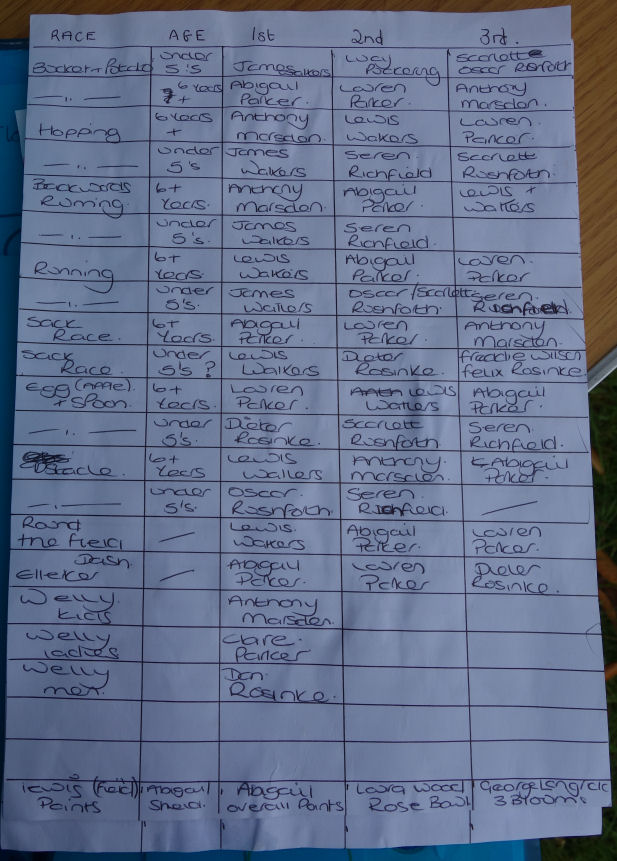 RACE AGE 1st 2nd 3rd.
under Lucy Scarlette
Bucket + Potato 5's James Walkers Pockering Oscar Roshforth
6 years Abigail Lauren Anthony
— .. — 7+ Parker. Parker. marsden.
6 years Anthony Lewis Lauren.
Hopping + marsden. Walkers Parker.
under James Seren. Scarlette
— .. — 5's Walkers Richfield Rushforth.
Backwards 6+ Anthony Abigail Lewis +
Running. Years. marsden. Parker. Walkers
under James Seren
— .. — 5's. Walkers Richfield.
6+ Lewis Abigail Lauren.
Running Years. Walkers Parker. Parker
under James Oscar/Scarlett Seren.
— .. — 5's. Wallers Rushforth. Richfield.
Sack 6+ Abigail Lauren Anthony
Race. Years. Parker. Parker. Marsden.
Sack under Lewis Dieter freddie wilson
Race. 5's ? Walkers Rosinke. felix Rosinke
Egg (Apple). 6+ Lauren Lewis Abigail
+ Spoon. Years. Parker. Wallers Parker.
under Dieter Scarlett Seren.
— .. — 5's. Rosinke. Rushforth. Richfield.
6+ Lewis Anthony. Abigail
Obstacle. Years Wallers marsden. Parker.
under Oscar. Seren.
— .. — 5's. Rushforth. Richfield. —
Round Lewis. Abigail Lauren
the field — Walkers Parker. Parker.
Dash. Abigail Lauren Dieter
Elleker — Parker. Parker Rosinke.
Welly. Anthony
kids Marsden.
Welly Clare.
ladies Parker
Welly Dan.
men. Rosinke.
Lewis (Field) Abigail Abigail Laura Wood George Longfield
Points Shield. overall Points Rose Bowl 3 Blooms